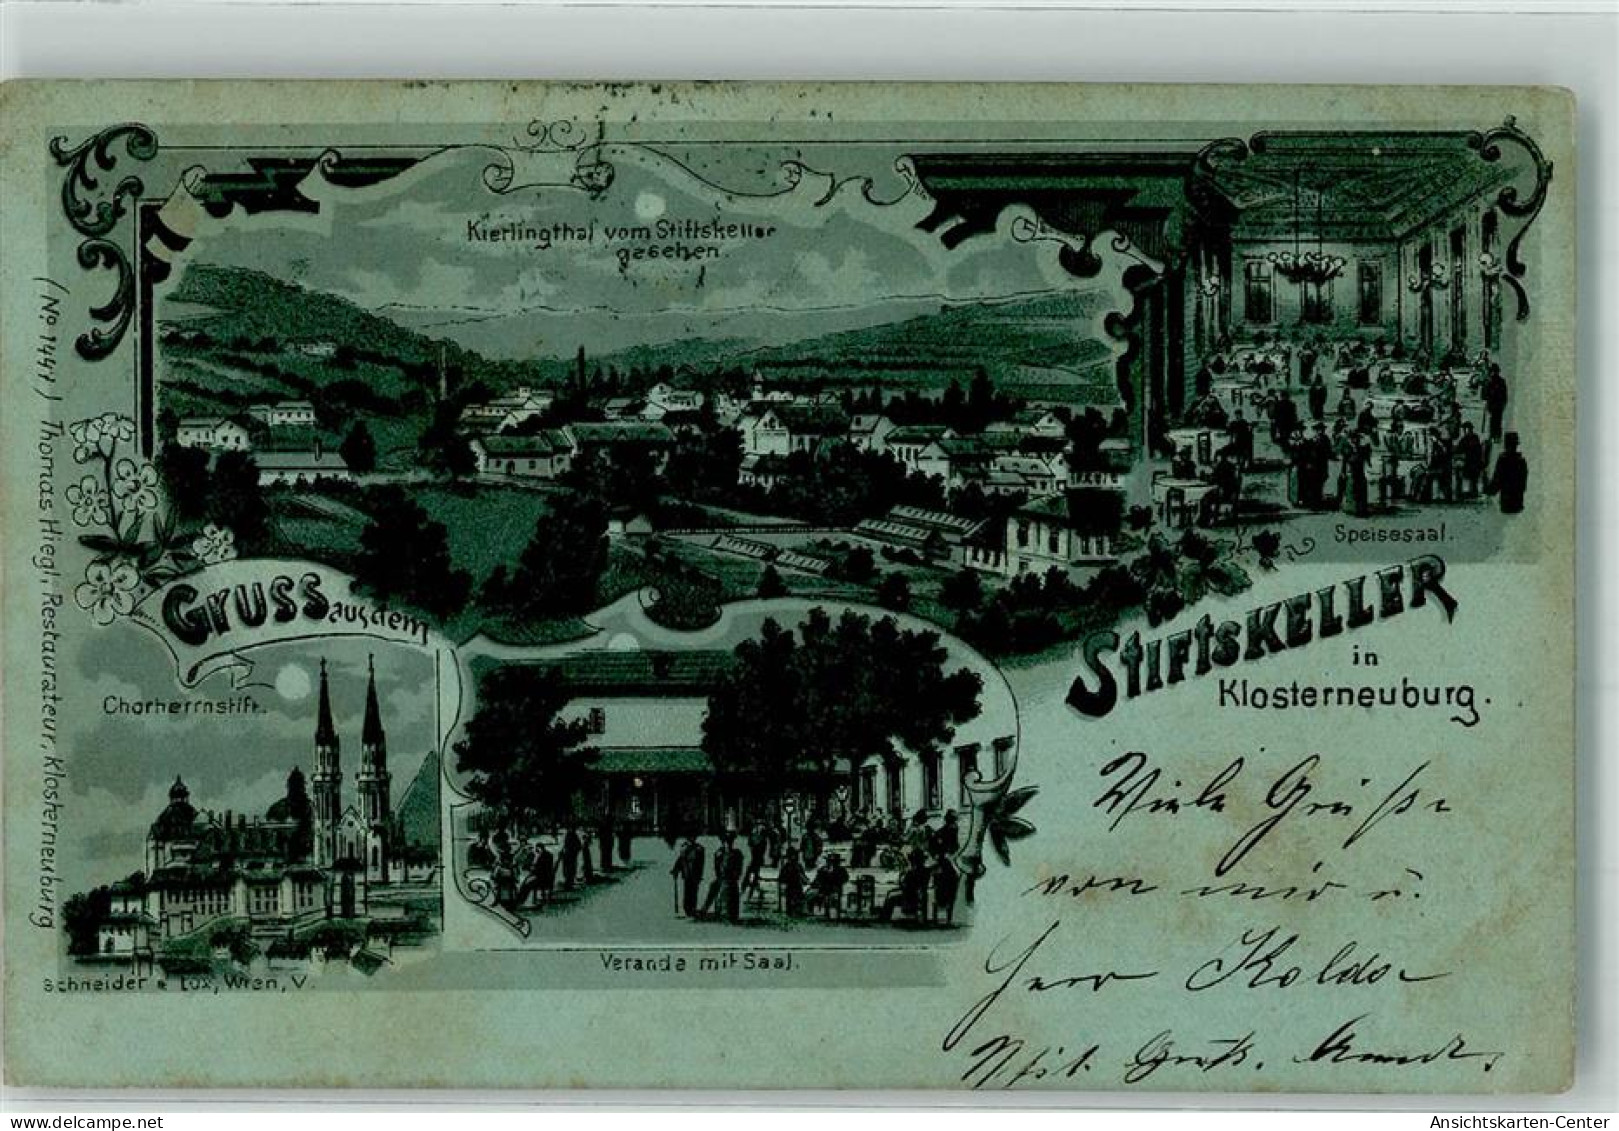 Kierlingthal vom Stiftskeller
gesehen.
Speisesaal.
(No 1441) Thomas Hiegl, Restaurateur, Klosterneuburg
Gruss aus dem
Stiftskeller
in
Klosterneuburg.
Chorherrnstift.
Veranda mit Saal.
Schneider & Lux, Wien, V.
Viele Grüße
von mir u.
Herr
Ansichtskarten-Center